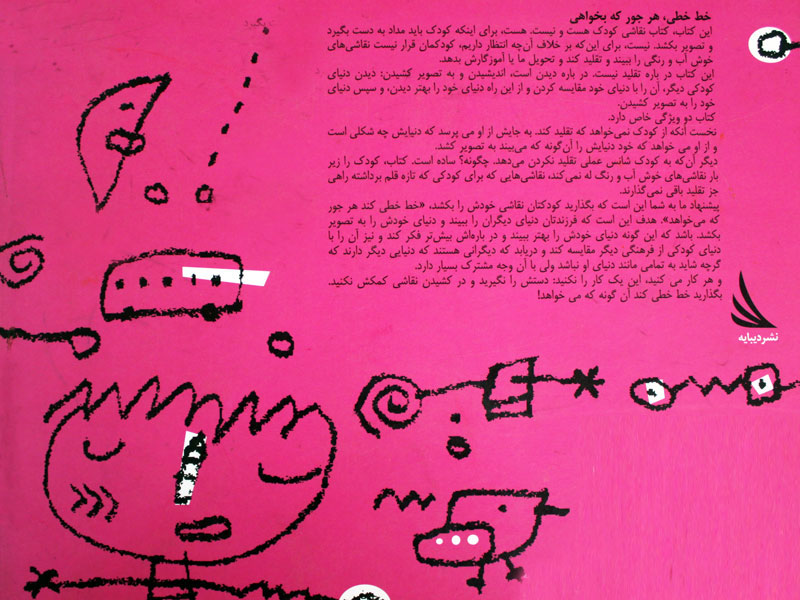 خط خطی، هر جور که بخواهی
این کتاب، کتاب نقاشی کودک هست و نیست. هست، برای اینکه کودک باید مداد به دست بگیرد
و تصویر بکشد. نیست، برای این‌که بر خلاف آن‌چه انتظار داریم، کودکمان قرار نیست نقاشی‌های
خوش آب و رنگی را ببیند و تقلید کند و تحویل ما یا آموزگارش بدهد.
این کتاب در باره تقلید نیست. در باره دیدن است، اندیشیدن و به تصویر کشیدن: دیدن دنیای
کودکی دیگر، آن را با دنیای خود مقایسه کردن و از این راه دنیای خود را بهتر دیدن، و سپس دنیای
خود را به تصویر کشیدن.
کتاب دو ویژگی خاص دارد.
نخست آنکه از کودک نمی‌خواهد که تقلید کند. به جایش از او می پرسد که دنیایش چه شکلی است
و از او می خواهد که خود دنیایش را آن‌گونه که می‌بیند به تصویر کشد.
دیگر آن‌که به کودک شانس عملی تقلید نکردن می‌دهد. چگونه؟ ساده است. کتاب، کودک را زیر
بار نقاشی‌های خوش آب و رنگ له نمی‌کند، نقاشی‌هایی که برای کودکی که تازه قلم برداشته راهی
جز تقلید باقی نمی‌گذارند.
پیشنهاد ما به شما این است که بگذارید کودکتان نقاشی خودش را بکشد، «خط خطی کند هر جور
که می‌خواهد». هدف این است که فرزندتان دنیای دیگران را ببیند و دنیای خودش را به تصویر
بکشد. باشد که این گونه دنیای خودش را بهتر ببیند و در باره‌اش بیش‌تر فکر کند و نیز آن را با
دنیای کودکی از فرهنگی دیگر مقایسه کند و دریابد که دیگرانی هستند که دنیایی دیگر دارند که
گرچه شاید به تمامی مانند دنیای او نباشد ولی با آن وجه مشترک بسیار دارد.
و هر کار می کنید، این یک کار را نکنید: دستش را نگیرید و در کشیدن نقاشی کمکش نکنید.
بگذارید خط خطی کند آن گونه که می خواهد!
نشر دیبایه